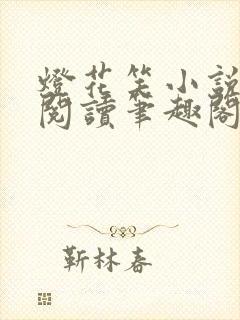 燈花笑小說
閱讀筆趣閣
靳林春